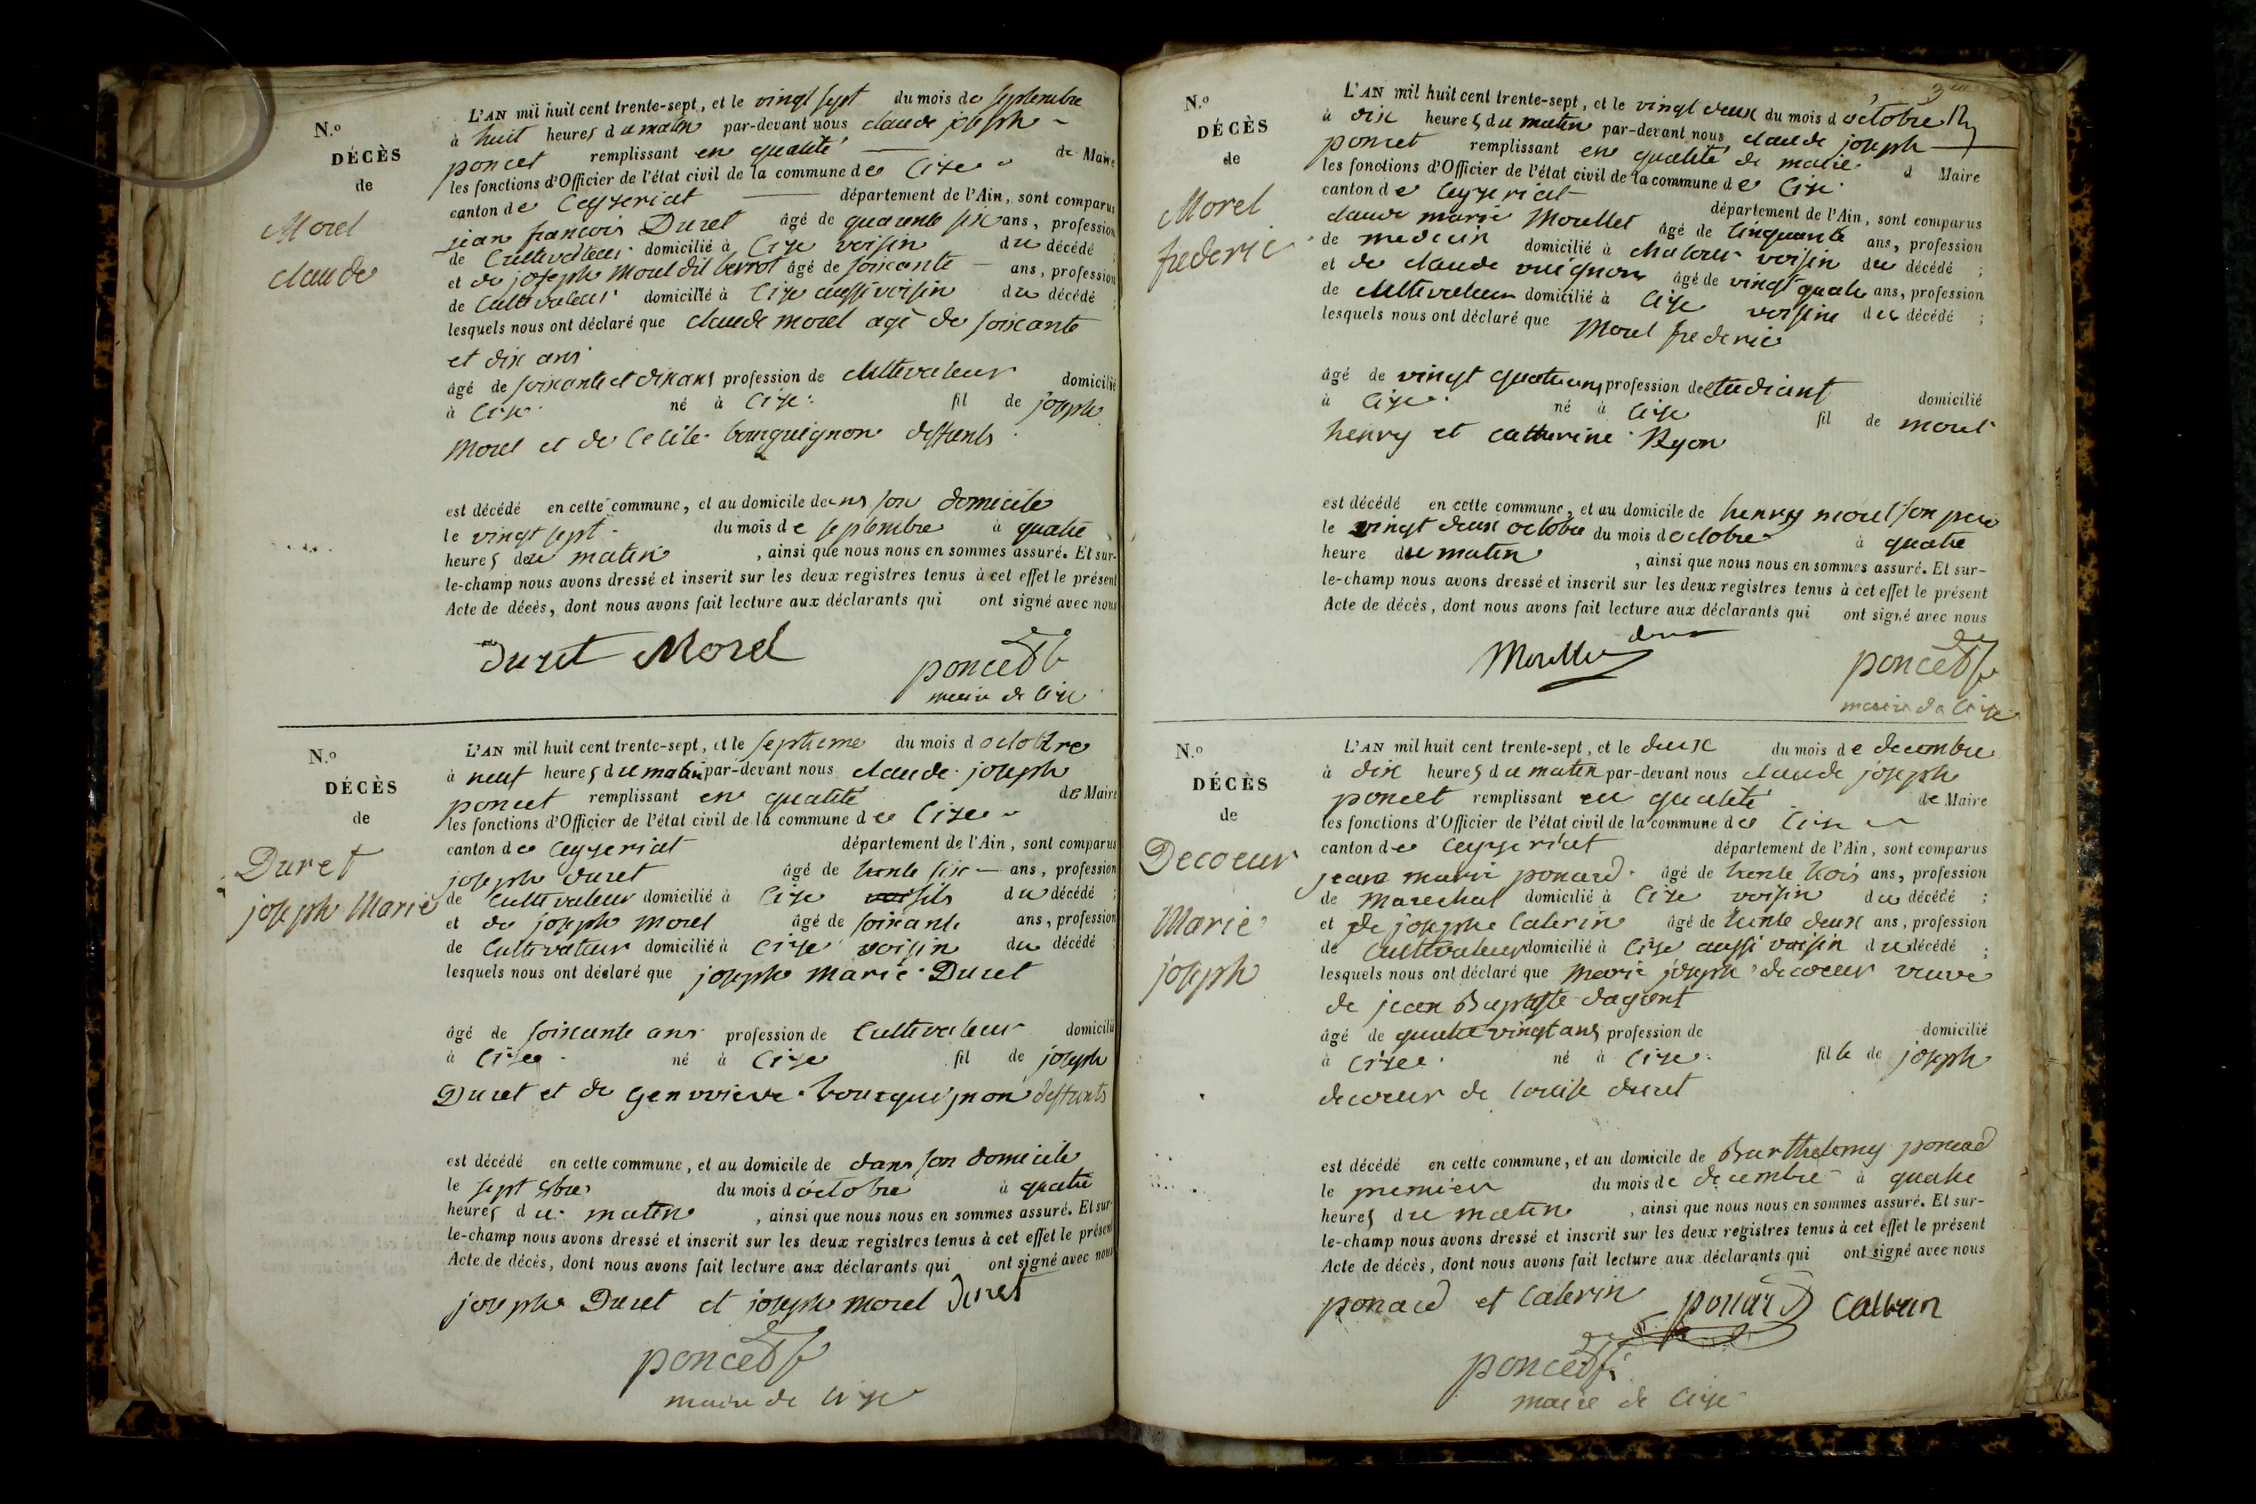 N.o
DÉCÈS
de
Morel
claude
L'AN mil huit cent trente-sept, et le vingt sept du mois de septembre
à huit heures du matin par-devant nous claude joseph
poncet remplissant en qualité de Maire
les fonctions d'Officier de l'état civil de la commune de Cize
canton de Ceyzeriat département de l'Ain, sont comparus
jean francois Duret âgé de quarente six ans, profession
de Cultivateur domicilié à Cize voisin du décédé ;
et de joseph Morel dit âgé de soixante ans, profession
de Cultivateur domicilié à Cize aussi voisin du décédé ;
lesquels nous ont déclaré que claude morel agé de soixante
et dix ans
âgé de soixante et dix ans profession de Cultivateur domicilié
à Cize né à Cize fil de joseph
Morel et de Cecile bourguignon deffunts
est décédé en cette commune, et au domicile dans son domicile
le vingt sept du mois de septembre à quatre
heures du matin, ainsi que nous nous en sommes assuré. Et sur-
le-champ nous avons dressé et inscrit sur les deux registres tenus à cet effet le présent
Acte de décès, dont nous avons fait lecture aux déclarants qui ont signé avec nous
Duret Morel poncet
maire de Cize
N.o
DÉCÈS
de
Duret
joseph Marie
L'AN mil huit cent trente-sept, et le septieme du mois d octobre
à neuf heures du matin par-devant nous claude joseph
poncet remplissant en qualité de Maire
les fonctions d'Officier de l'état civil de la commune de Cize
canton de Ceyzeriat département de l'Ain, sont comparus
joseph duret âgé de trente six ans, profession
de Cultivateur domicilié à Cize fils du décédé ;
et de joseph morel âgé de soixante ans, profession
de Cultivateur domicilié à Cize voisin du décédé ;
lesquels nous ont déclaré que joseph Marie Duret
âgé de soixante ans profession de Cultivateur domicilié
à Cize né à Cize fil de joseph
Duret et de genvieve bourguignon deffunts
est décédé en cette commune, et au domicile de dans son domicile
le sept du mois d octobre à quatre
heures du matin, ainsi que nous nous en sommes assuré. Et sur-
le-champ nous avons dressé et inscrit sur les deux registres tenus à cet effet le présent
Acte de décès, dont nous avons fait lecture aux déclarants qui ont signé avec nous
joseph Duret et joseph morel Duret
poncet
maire de Cize
N.o
DÉCÈS
de
Morel
frederic
L'AN mil huit cent trente-sept, et le vingt deux du mois d octobre
à dix heures du matin par-devant nous claude joseph
poncet remplissant en qualité de maire d Maire
les fonctions d'Officier de l'état civil de la commune de Cize
canton de Ceyzeriat département de l'Ain, sont comparus
claude marie Morellet âgé de Cinquante ans, profession
de medecin domicilié à voisin du décédé ;
et de claude âgé de vingt quatre ans, profession
de Cultivateur domicilié à Cize voisin du décédé ;
lesquels nous ont déclaré que Morel frederic
âgé de vingt quatre ans profession de etudiant domicilié
à Cize né à Cize fil de morel
henry et catherine
est décédé en cette commune, et au domicile de henry morel son pere
le vingt deux octobre du mois d octobre à quatre
heure du matin, ainsi que nous nous en sommes assuré. Et sur-
le-champ nous avons dressé et inscrit sur les deux registres tenus à cet effet le présent
Acte de décès, dont nous avons fait lecture aux déclarants qui ont signé avec nous
poncet
maire de Cize
N.o
DÉCÈS
de
Decoeur
Marie
joseph
L'AN mil huit cent trente-sept, et le deux du mois de decembre
à dix heures du matin par-devant nous claude joseph
poncet remplissant en qualité de Maire
les fonctions d'Officier de l'état civil de la commune de Cize
canton de Ceyzeriat département de l'Ain, sont comparus
jean marie ponard âgé de trente trois ans, profession
de Marechal domicilié à Cize voisin du décédé ;
et de joseph Caterin âgé de trente deux ans, profession
de Cultivateur domicilié à Cize aussi voisin du décédé ;
lesquels nous ont déclaré que Marie joseph decoeur veuve
de jean Baptiste dagont
âgé de quatre vingt ans profession de domicilié
à Cize né à Cize fille de joseph
decoeur de Louise duret
est décédé en cette commune, et au domicile de Barthelemy ponard
le premier du mois de decembre à quatre
heures du matin, ainsi que nous nous en sommes assuré. Et sur-
le-champ nous avons dressé et inscrit sur les deux registres tenus à cet effet le présent
Acte de décès, dont nous avons fait lecture aux déclarants qui ont signé avec nous
ponard et Caterin ponard
poncet
maire de Cize